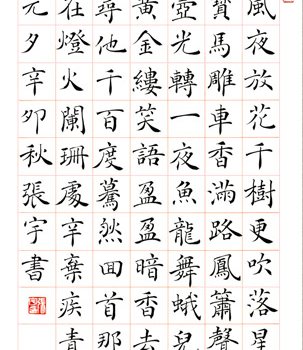 風夜放花千樹更吹落星
寶馬雕車香滿路鳳簫聲
壺光轉一夜魚龍舞蛾兒
黃金縷笑語盈盈暗香去
尋他千百度驀然回首那
在燈火闌珊處辛棄疾青
元夕辛卯秋張宇書